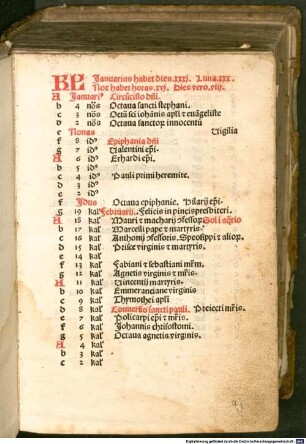 KL Januarius habet dies .xxxj. Luna .xxx.
Nox habet horas .xvj. Dies vero .viij.
A Januari⁹ Circūcisio dñi.
b 4 nōs Octaua sancti stephani.
c 3 nōs Octã sci iohãnis apłi et euãgeliste
d 2 nōs Octaua sanctoꝝ innocentū
e Nonas Vigilia
f 8 id⁹ Epiphania dñi
g 7 id⁹ Valentini epi.
A 6 id⁹ Erhardi epi.
b 5 id⁹
c 4 id⁹ Pauli primi heremite.
d 3 id⁹
e 2 id⁹
f Idus Octaua epiphanie. Hilarij epi.
g 19 kal' Februarij. Felicis in pincis presbiteri.
A 18 kal' Mauri et macharij ꝯfessoꝝ. Sol ī aq̄rio
b 17 kal' Marcelli pape et martyris.
c 16 kal' Anthonij ꝯfessoris. Speosippi et alioꝝ.
d 15 kal' Prisce virginis et martyris.
e 14 kal'
f 13 kal' Fabiani et sebastiani mr̃m.
g 12 kal' Agnetis virginis et mr̃is.
A 11 kal' Vincentij martyris.
b 10 kal' Emmeranciane virginis
c 9 kal' Thymothei apłi
d 8 kal' Conuersio sancti pauli. Preiecti mr̃is.
e 7 kal' Policarpi epi et mr̃is.
f 6 kal' Johannis chrisostomi.
g 5 kal' Octaua agnetis virginis.
A 4 kal'
b 3 kal'
c 2 kal'